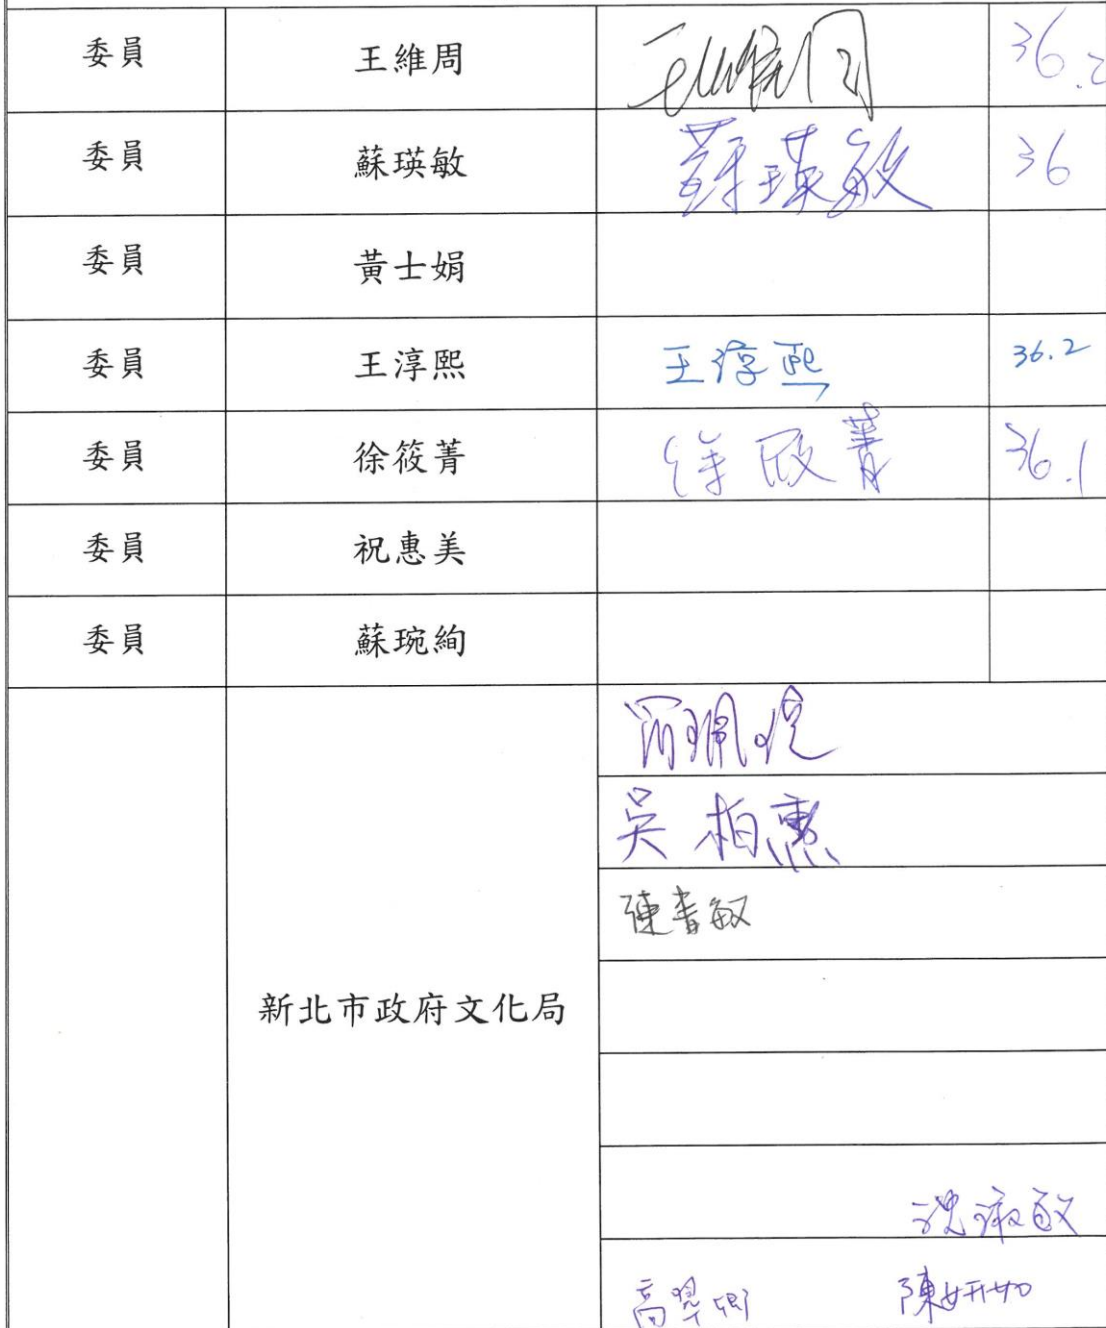 委員 王維周 王維周 36.2
委員 蘇瑛敏 蘇瑛敏 36
委員 黃士娟
委員 王淳熙 王淳熙 36.2
委員 徐筱菁 徐筱菁 36.1
委員 祝惠美
委員 蘇琬絢
吳柏勳
陳書敏
新北市政府文化局
沈淑敏
高翠卿 陳妍如